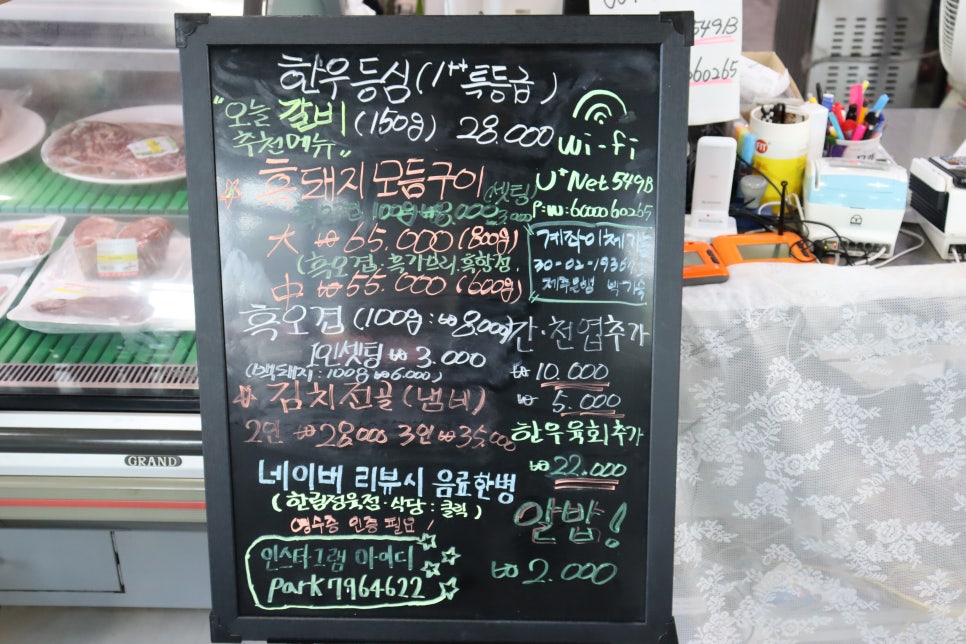 한우등심(1++ 특등급)
"오늘 갈비
추천메뉴" (150g) 28.000
wi-fi
흑돼지모듬구이
U+Net549B
P:W:6000060265
大 ₩65.000(800g)
(흑오겹.흑가브리.흑항정
中 ₩55.000(600g)
계좌이체
30-02-1936
제주은행
흑오겹(100g:₩8,000)
1인셋팅 ₩3.000
(백돼지:100g ₩6.000)
김치전골(냄비)
2인 ₩28000 3인 ₩35,000
네이버 리뷰시 음료한병
(한림정육점·식당:클릭)
영수증 인증 필요!
인스타그램 아이디
park7964622
간·천엽추가
₩10.000
₩5.000
한우육회추가
₩22.000
알밥!
₩2.000
GRAND
549B
060265